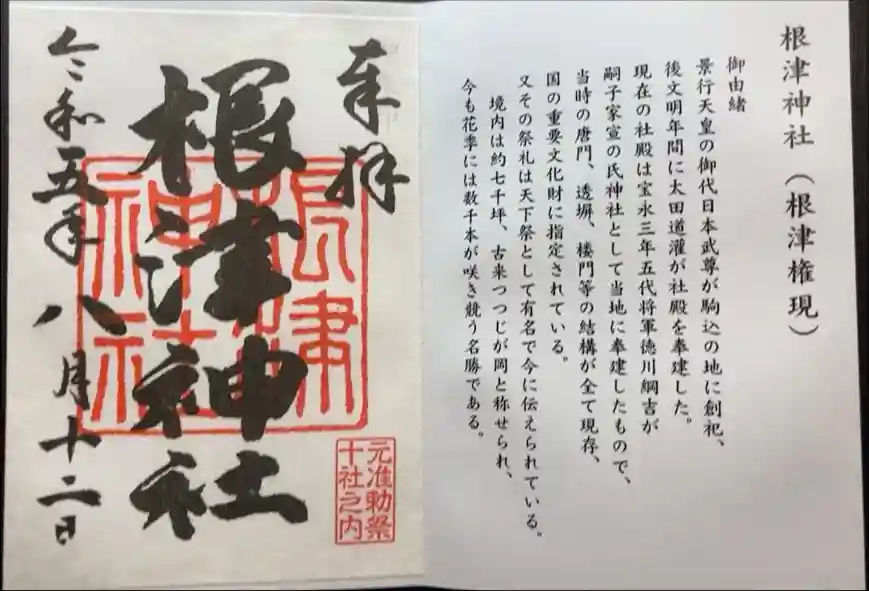 根津神社（根津権現）
御由緒
景行天皇の御代日本武尊が駒込の地に創祀、
後文明年間に太田道灌が社殿を奉建した。
現在の社殿は宝永三年五代将軍徳川綱吉が
嗣子家宣の氏神社として当地に奉建したもので、
当時の唐門、透塀、楼門等の結構が全て現存、
国の重要文化財に指定されている。
又その祭礼は天下祭として有名で今に伝えられている。
境内は約七千坪、古来つつじが岡と称せられ、
今も花季には数千本が咲き競う名勝である。
奉拝
根津神社
根津
神社
元准勅祭
十社之内
令和五年八月十二日